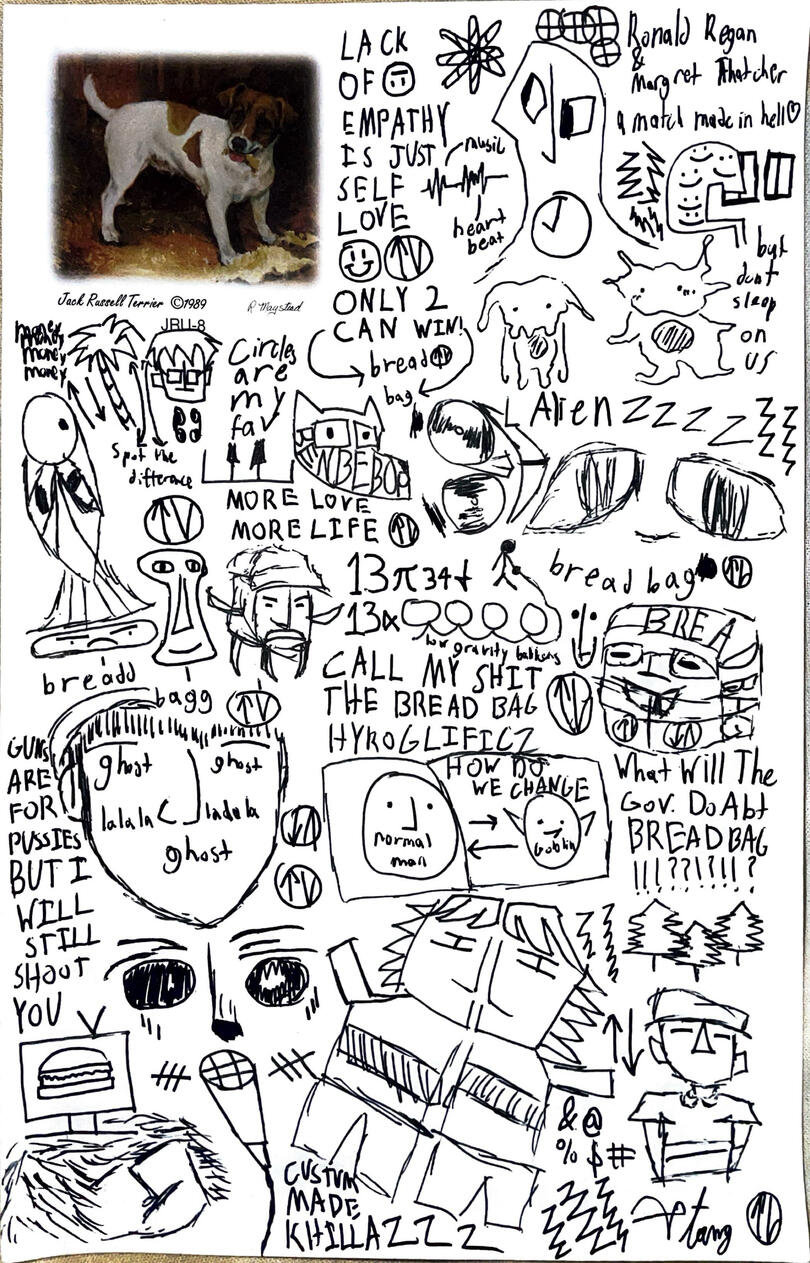 LACK
OF
EMPATHY
IS JUST
SELF
LOVE
ONLY 2
CAN WIN!
music
heart
beat
Ronald Regan
&
Margret Thatcher
a match made in hell♡
but
dont
sleep
on
us
Jack Russell Terrier ©1989
JRU-8
money
money
money
money
Spot the
difference
Circles
are
my
fav
bread
bag
L Alien ZZZZ
MORE LOVE
MORE LIFE
13π34t
13x
low gravity balloons
bread bag
BREA
breadd
bagg
CALL MY SHIT
THE BREAD BAG
HYROGLIFICZ
GUNS
ARE
FOR
PUSSIES
BUT I
WILL
STILL
SHOOT
YOU
ghost ghost
lalala lalala
ghost
HOW DO
WE CHANGE
normal
man
Goblin
What Will The
Gov. Do Abt
BREAD BAG
!!!??!?!! ?
&@
%$#
CUSTUM
MADE
KHILLAZZZ
tang